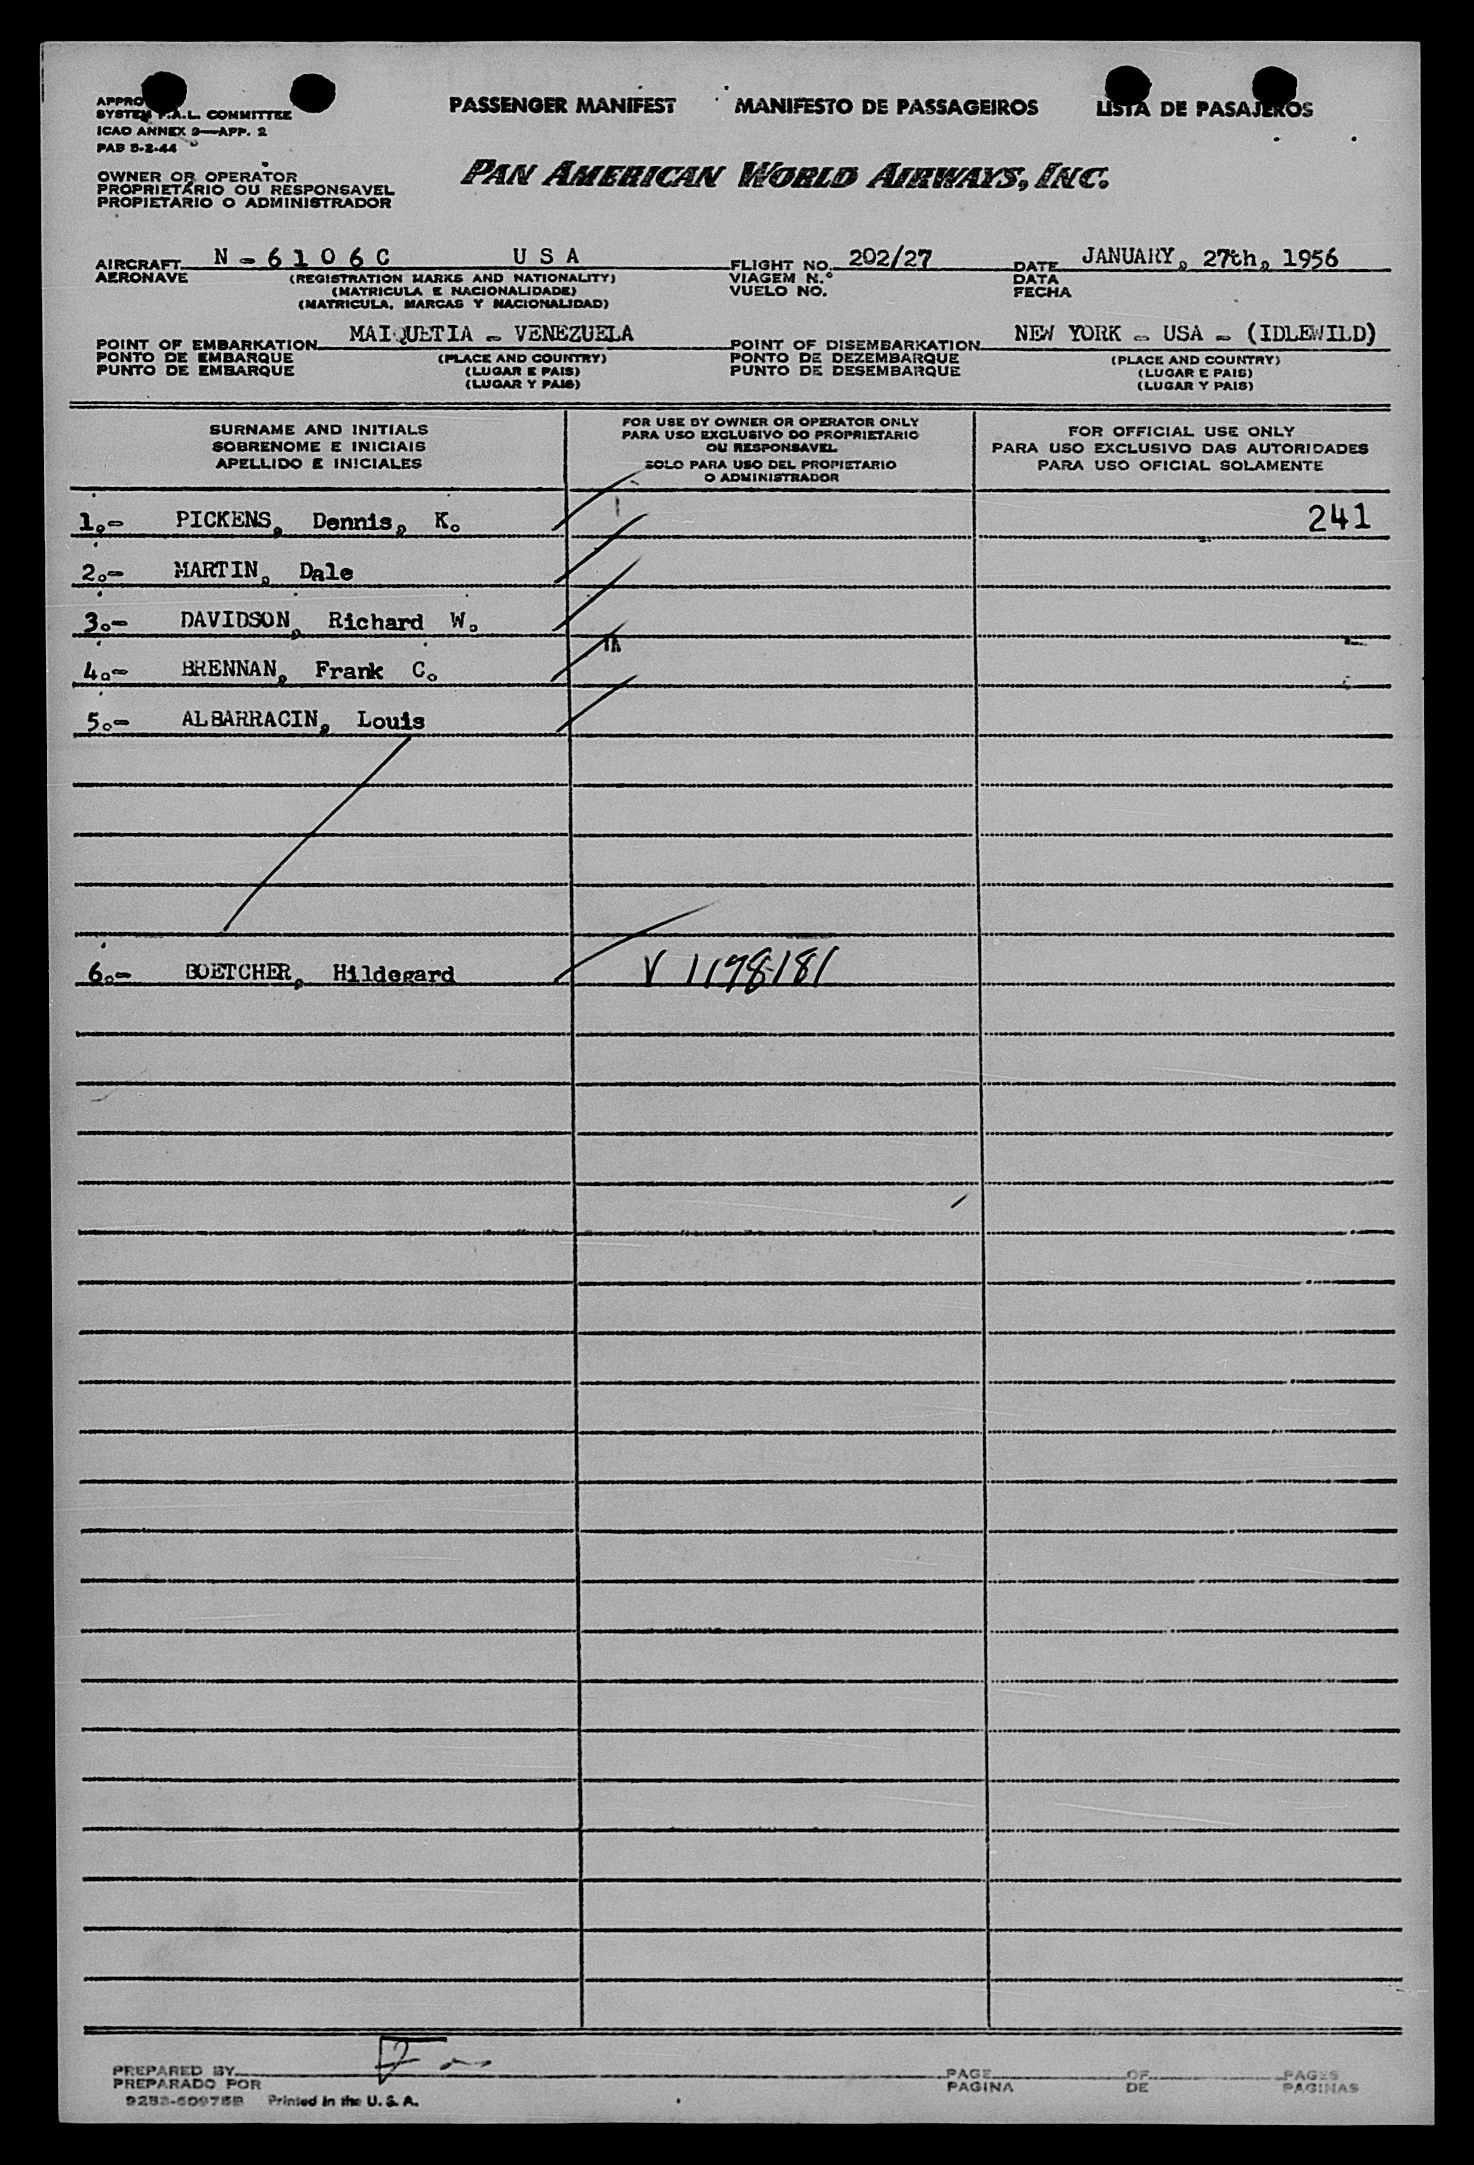 PASSENGER MANIFEST MANIFESTO DE PASSAGEIROS LISTA DE PASAJEROS
SYSTEM F.A.L. COMMITTEE
ICAO ANNEX 9—APP. 2
PAB 5-2-44
OWNER OR OPERATOR
PROPRIETÁRIO OU RESPONSAVEL
PROPIETARIO O ADMINISTRADOR
PAN AMERICAN WORLD AIRWAYS, INC.
AIRCRAFT N - 6 1 0 6 C U S A FLIGHT NO. 202/27 DATE JANUARY, 27th, 1956
AERONAVE (REGISTRATION MARKS AND NATIONALITY) VIAGEM N.° DATA
(MATRICULA E NACIONALIDADE) VUELO NO. FECHA
(MATRICULA, MARCAS Y NACIONALIDAD)
POINT OF EMBARKATION MAIQUETIA - VENEZUELA POINT OF DISEMBARKATION NEW YORK - USA - (IDLEWILD)
PONTO DE EMBARQUE (PLACE AND COUNTRY) PONTO DE DEZEMBARQUE (PLACE AND COUNTRY)
PUNTO DE EMBARQUE (LUGAR E PAIS) PUNTO DE DESEMBARQUE (LUGAR E PAIS)
(LUGAR Y PAIS) (LUGAR Y PAIS)
SURNAME AND INITIALS
SOBRENOME E INICIAIS
APELLIDO E INICIALES
FOR USE BY OWNER OR OPERATOR ONLY
PARA USO EXCLUSIVO DO PROPRIETARIO
OU RESPONSAVEL
SOLO PARA USO DEL PROPIETARIO
O ADMINISTRADOR
FOR OFFICIAL USE ONLY
PARA USO EXCLUSIVO DAS AUTORIDADES
PARA USO OFICIAL SOLAMENTE
1.- PICKENS, Dennis, K. 241
2.- MARTIN, Dale
3.- DAVIDSON, Richard W.
4.- BRENNAN, Frank C.
5.- ALBARRACIN, Louis
6.- BOETCHER, Hildegard V 1178181
PREPARED BY PAGE OF PAGES
PREPARADO POR PAGINA DE PAGINAS
Printed in the U. S. A.